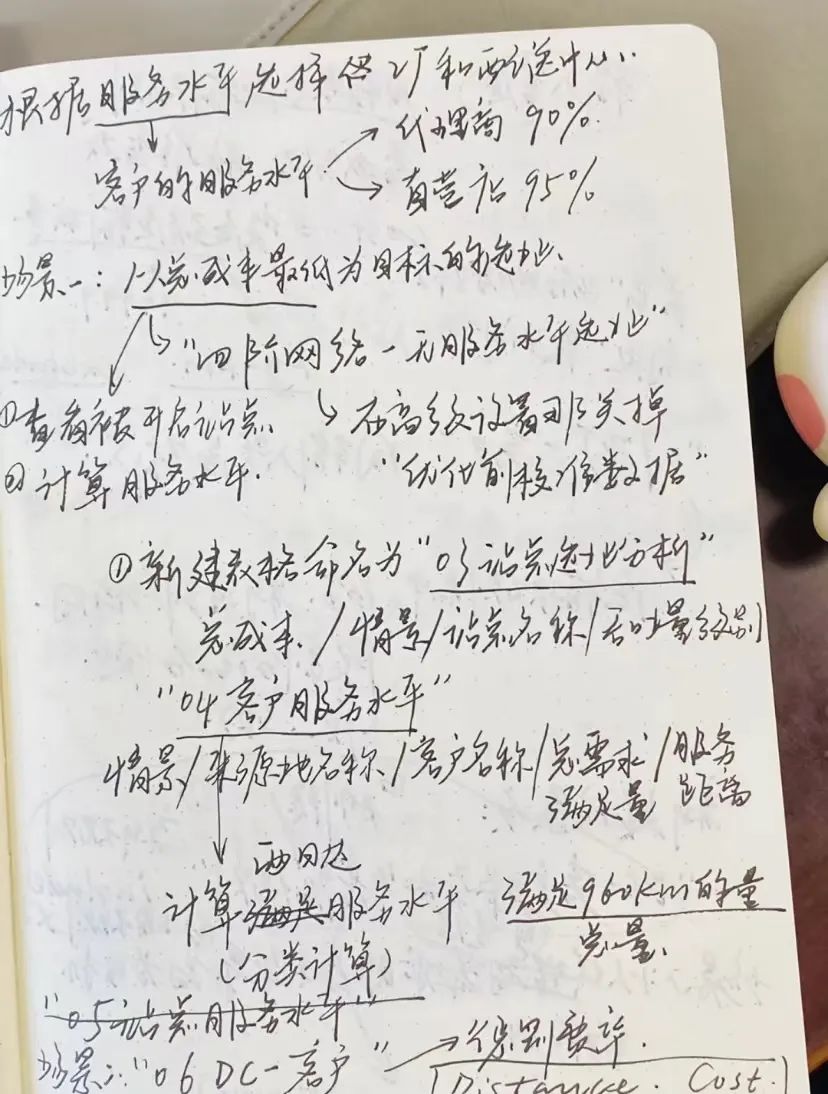 根据服务水平选择供厂和配送中心:
客户的服务水平 → 代理商 90%
→ 直营店 95%
场景一: 以总成本最低为目标的选址.
"四阶网络-无服务水平选址"
①查看被开启站点. 在高级设置那关掉
②计算服务水平. "优化前校准数据"
①新建表格命名为"03站点选址分析"
总成本/情景/站点名称/吞吐量级别
"04客户服务水平"
情景/来源地名称/客户名称/总需求/服务
满足量 距离
两日达
计算满足服务水平 满足960km的量
(分类计算) 总量.
"05站点服务水平"
场景二:"06 DC-客户" → 级别费率.
Distance. Cost.